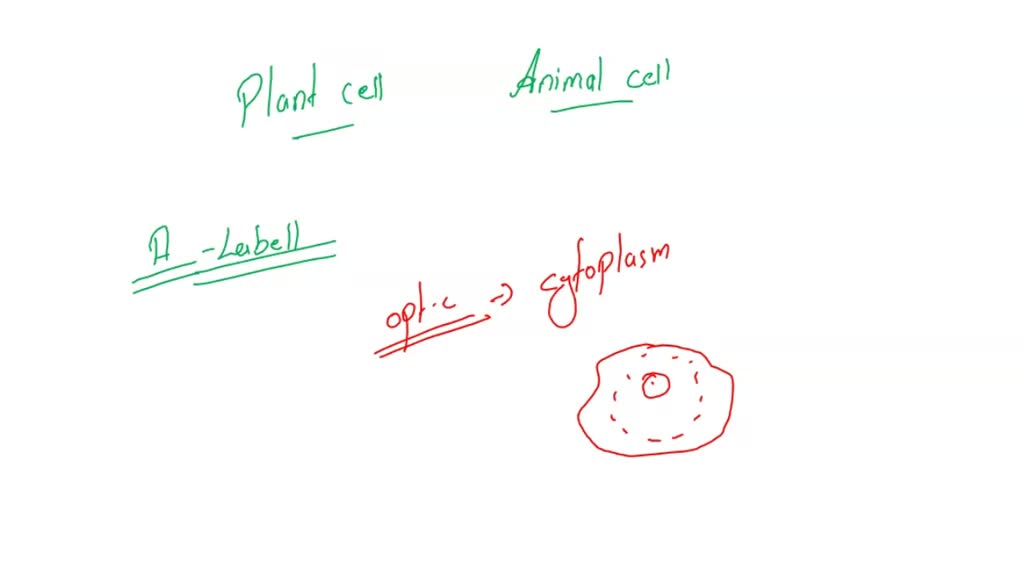 Plant cell
Animal cell
A - Labell
optic → cytoplasm